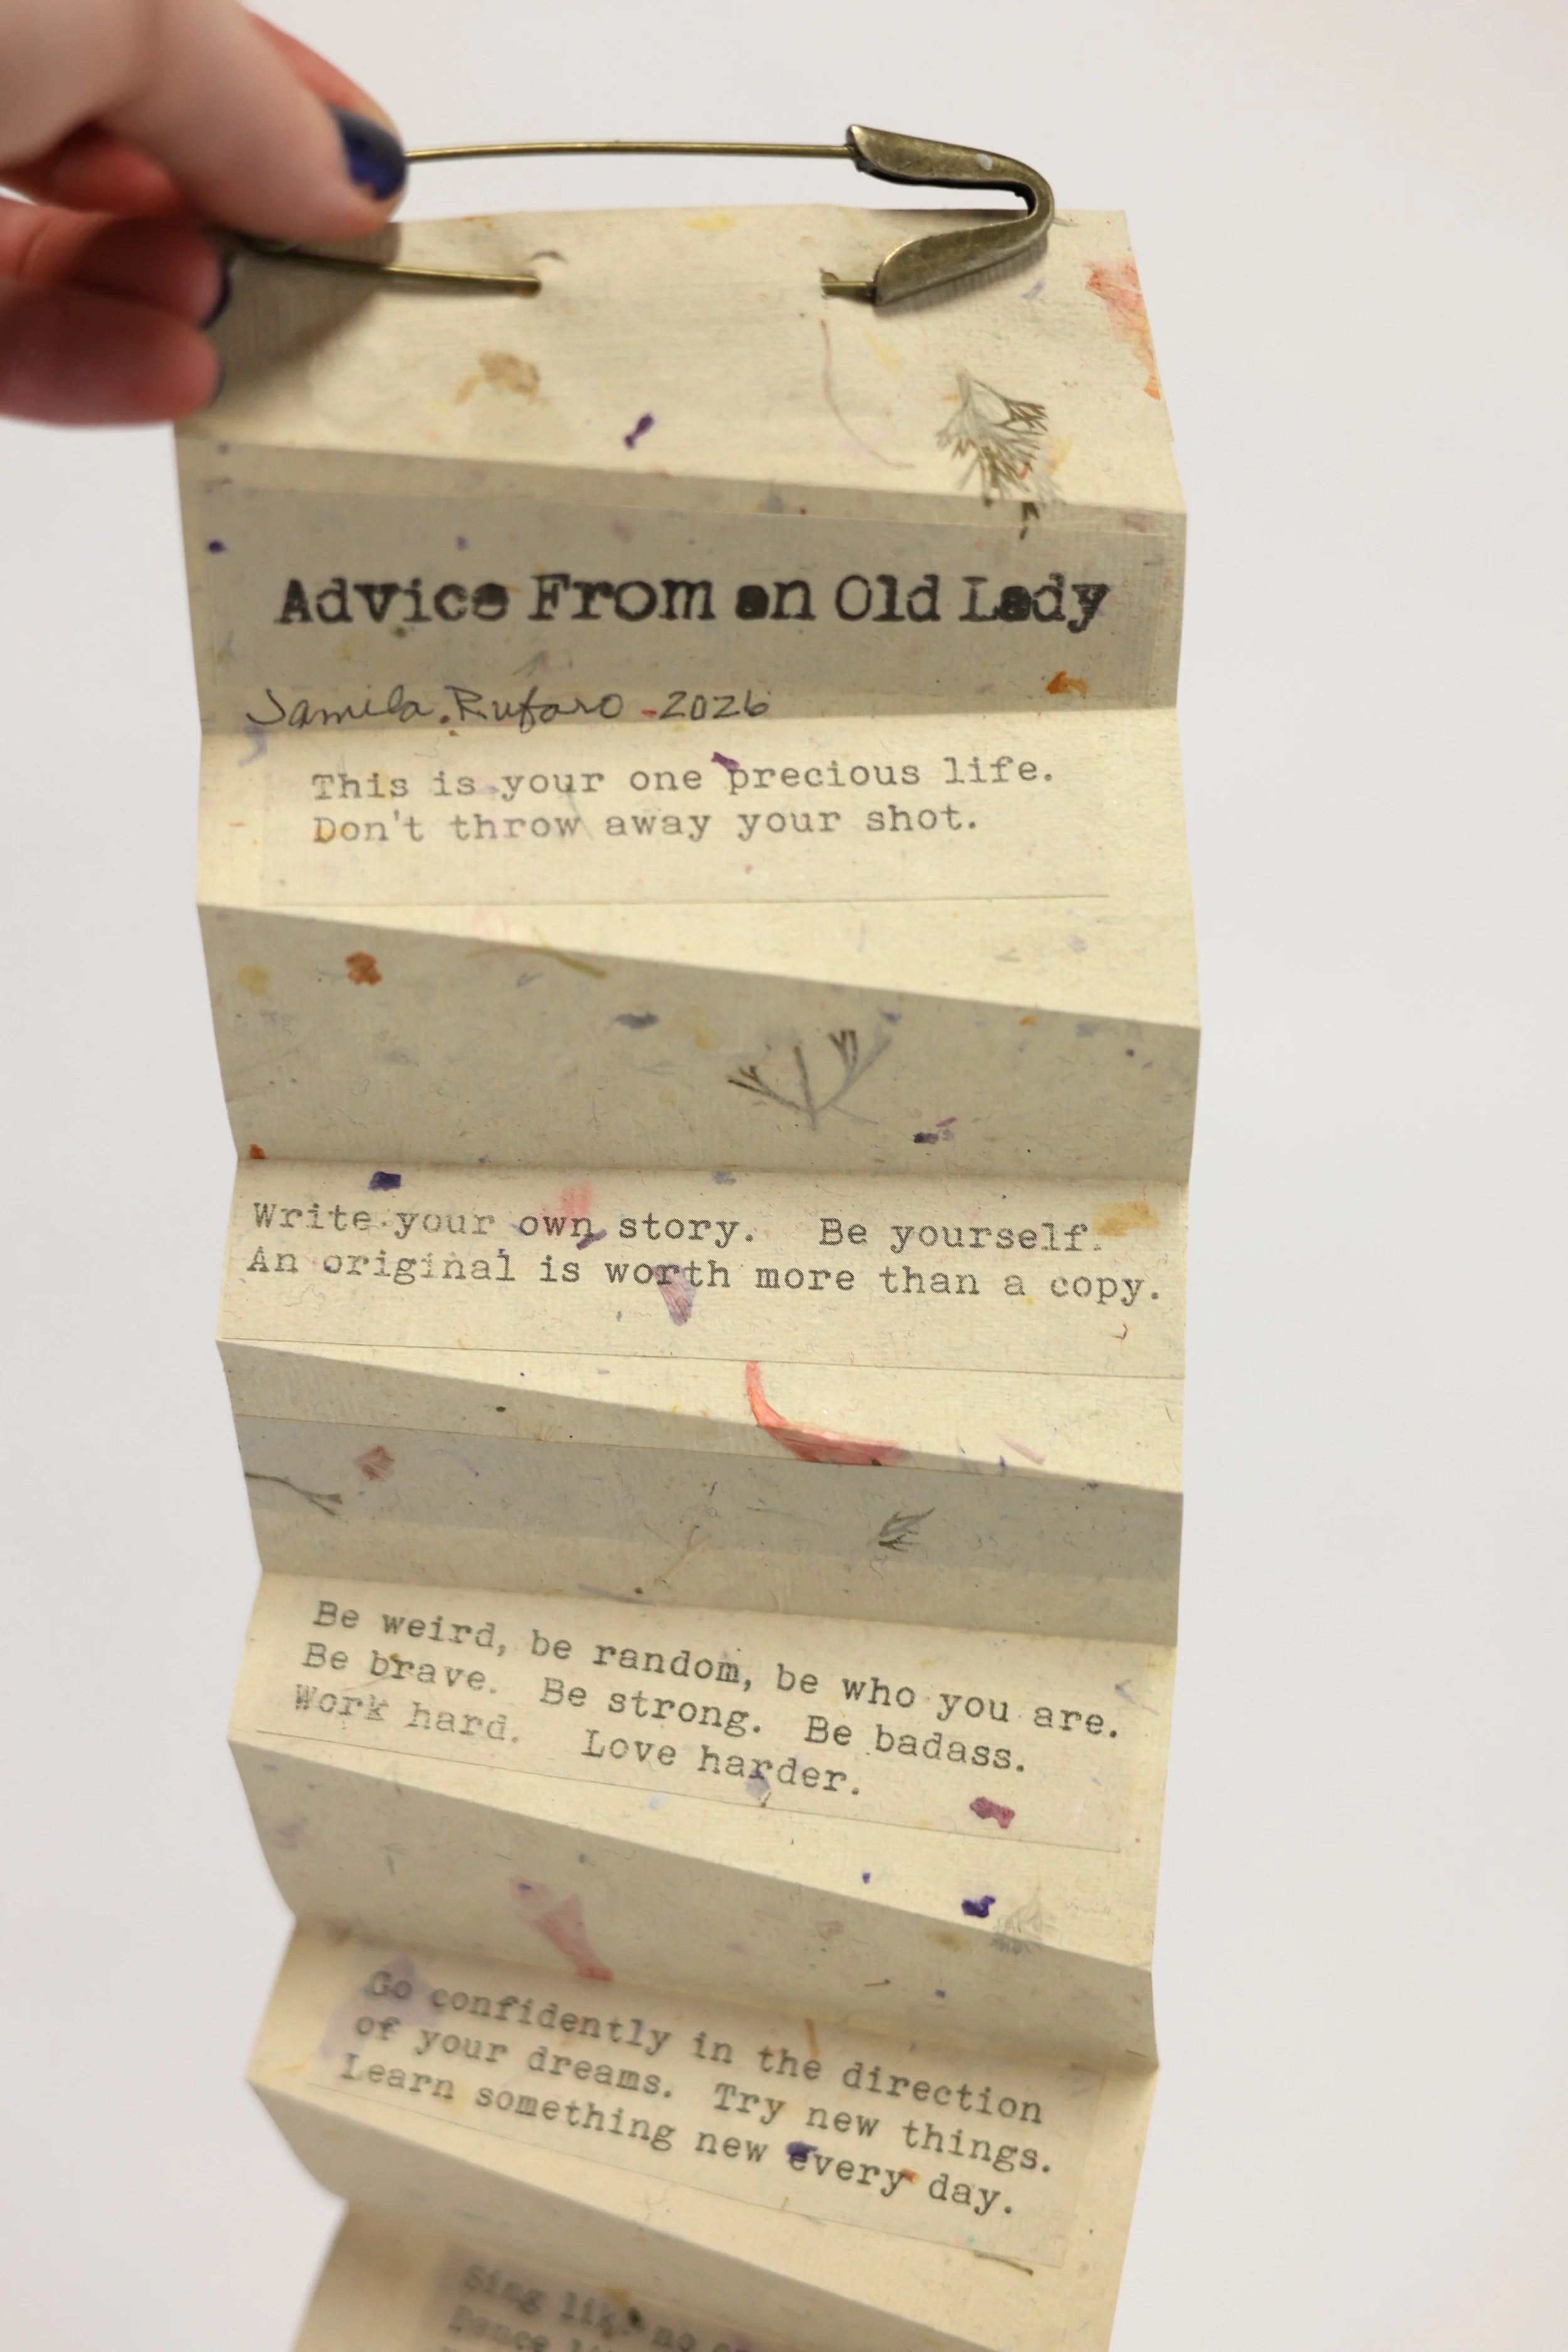 Advice From an Old Lady
Jamila Rufaro 2026
This is your one precious life.
Don't throw away your shot.
Write your own story. Be yourself.
An original is worth more than a copy.
Be weird, be random, be who you are.
Be brave. Be strong. Be badass.
Work hard. Love harder.
Go confidently in the direction
of your dreams. Try new things.
Learn something new every day.
Sing like no
Dance